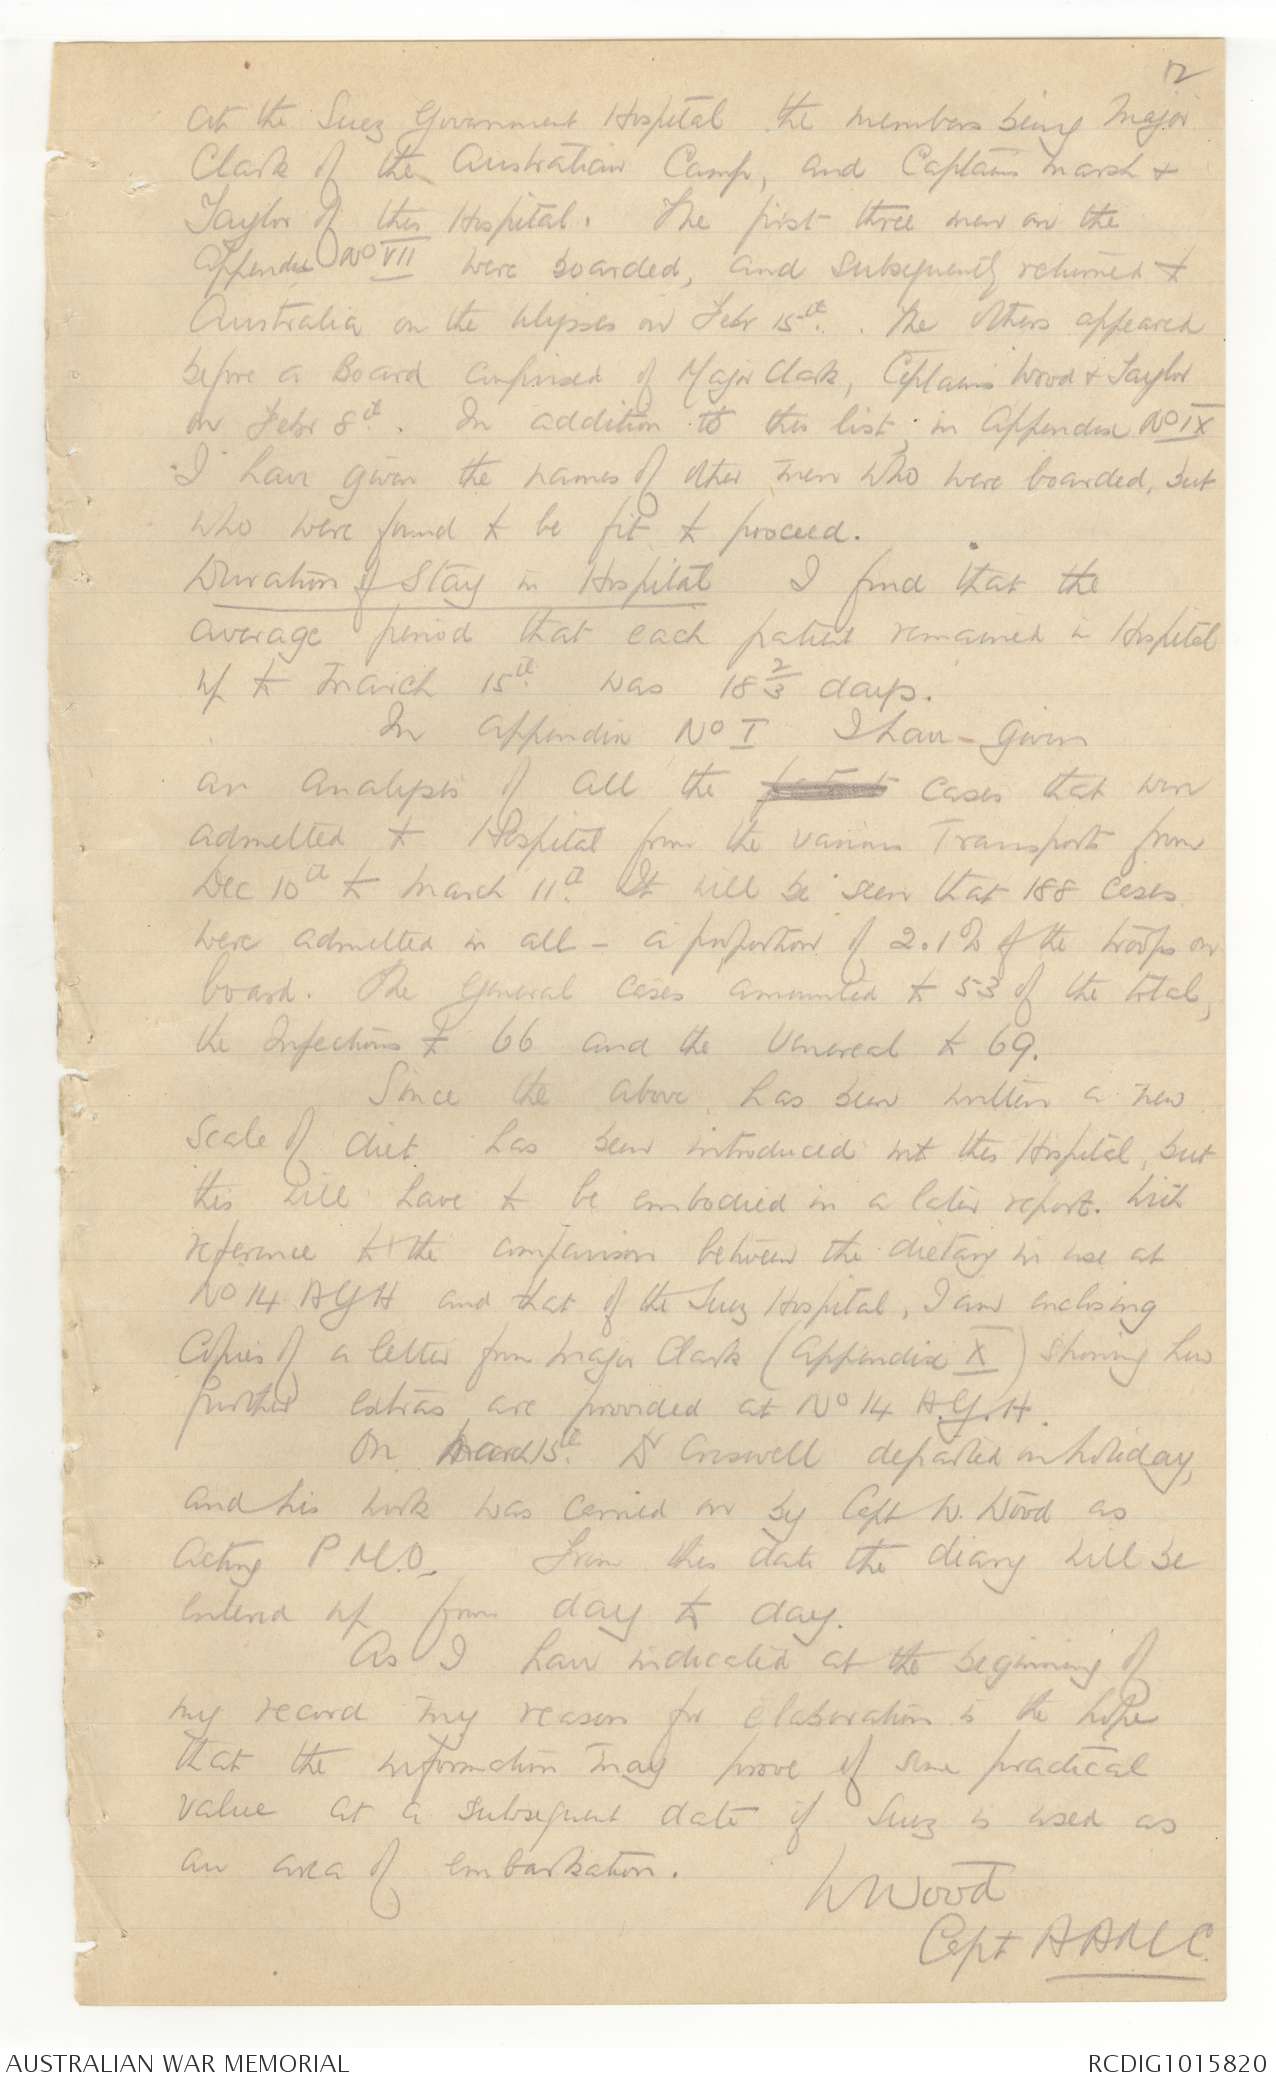 12
at the Suez Government Hospital the members being Major
Clark of the Australian Camp, and Captains Marsh &
Taylor of this Hospital. The first three men on the
Appendix No VII were boarded, and subsequently returned to
Australia on the Ulysses on Febr 15th. The others appeared
before a Board comprised of Major Clark, Captains Wood & Taylor
on Febr 8th. In addition to this list, in Appendix No IX
I have given the names of other men who were boarded, but
who were found to be fit to proceed.
Duration of Stay in Hospital I find that the
average period that each patient remained in Hospital
up to March 15th was 18 2/3 days.
In appendix No I I have given
an analysis of all the patients cases that were
admitted to Hospital from the various Transports from
Dec 10th to March 11th. It will be seen that 188 cases
were admitted in all - a proportion of 2.1% of the troops on
board. The General cases amounted to 53 of the total,
the Infectious to 66 and the Venereal to 69.
Since the above has been written a new
scale of diet has been introduced into this Hospital, but
this will have to be embodied in a later report. With
reference to the comparison between the dietary in use at
No 14 AGH and that of the Suez Hospital, I am enclosing
Copies of a letter from Major Clark (Appendix X) showing how
further extras are provided at No 14 A.G.H.
On March 15th Dr Creswell departed on holiday,
and his work was carried on by Capt W. Wood as
Acting P.M.O. From this date the diary will be
entered up from day to day.
As I have indicated at the beginning of
my record my reason for elaboration is the hope
that the information may prove of some practical
value at a subsequent date if Suez is used as
an area of embarkation.
W Wood
Capt AAMC
AUSTRALIAN WAR MEMORIAL
RCDIG1015820